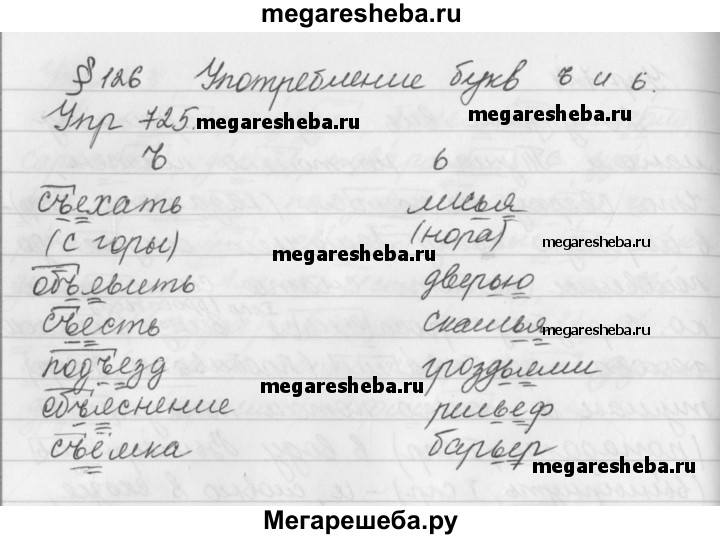 megaresheba.ru
§ 126 Употребление букв ъ и ь.
Упр 725. megaresheba.ru
ъ ь
съехать лисья
(с горы) megaresheba.ru (нора) megaresheba.ru
объявить дверью
съесть скамья megaresheba.ru
подъезд megaresheba.ru гроздьями
объяснение рельеф
съёмка барьер megaresheba.ru
Мегарешеба.ру